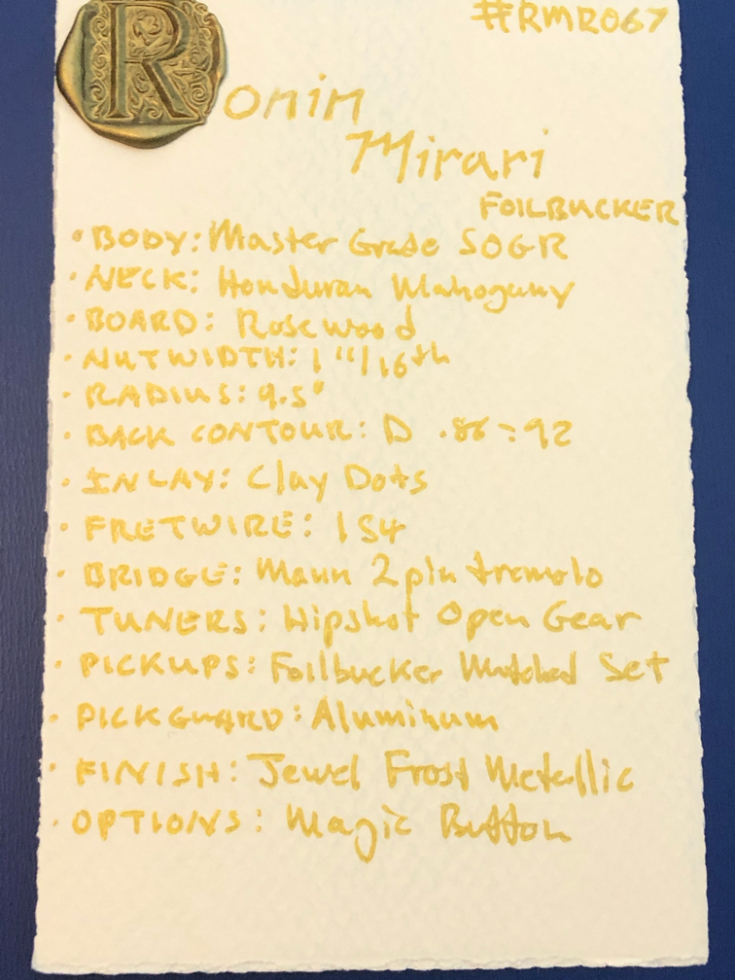 #RMR067
Ronin
Mirari
FOILBUCKER
• BODY: Master Grade SOGR
• NECK: Honduran Mahogany
• BOARD: Rosewood
• NUTWIDTH: 1 11/16th
• RADIUS: 9.5"
• BACK CONTOUR: D .86 - 92
• INLAY: Clay Dots
• FRETWIRE: 154
• BRIDGE: Mann 2pin tremolo
• TUNERS: Hipshot Open Gear
• PICKUPS: Foilbucker Matched Set
• PICKGUARD: Aluminum
• FINISH: Jewel Frost Metallic
• OPTIONS: Magic Button